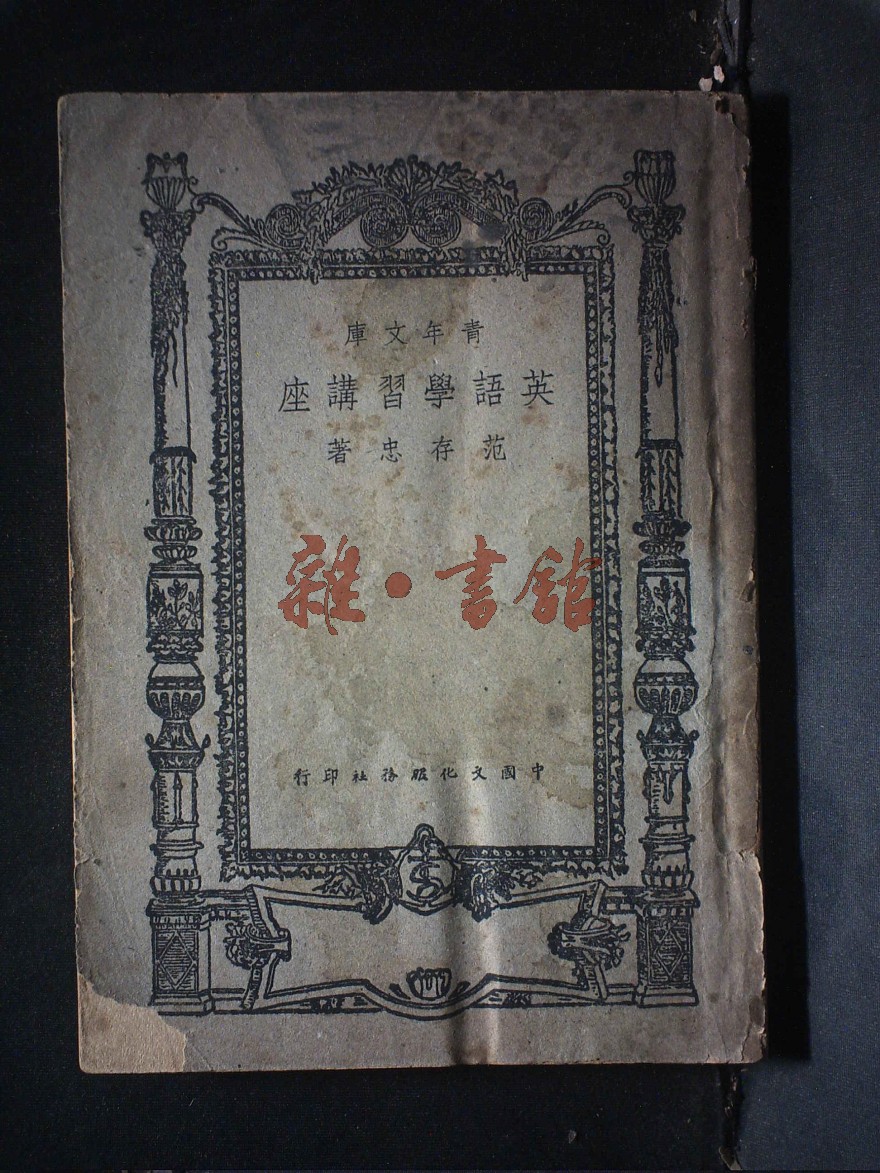 青年文庫
英語學習講座
范存忠著
雜·書館
中國文化服務社印行